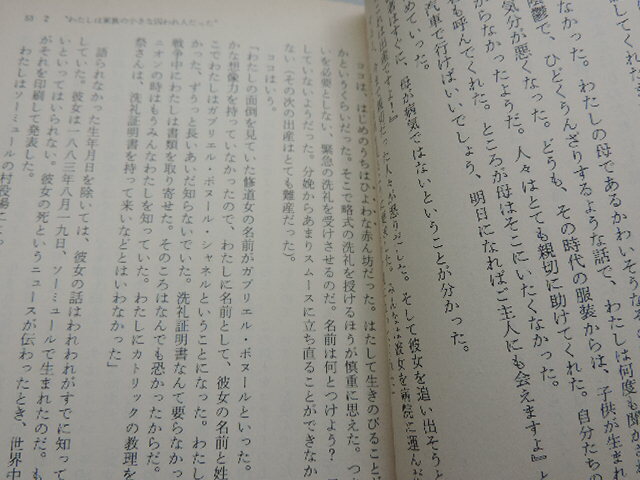 なかった。わたしの母であるかわいそうな
陰鬱で、ひどくうんざりするような話で、わたしは何度も聞か
気分が悪くなった。どうも、その時代の服装からは、子供が生まれ
らなかったようだ。人々はとても親切に助けてくれた。自分たちの
も呼んでくれた。ところが母はそこにいたくなかった。
汽車で行けばいいでしょう、明日になればご主人にも会えますよ』と
めていった。
者はすぐに、母が病気ではないということが分かった。
そして彼女を追い出そうと
彼女を病院に運んだ
55 2 “わたしは家族の小さな囚われ人だった”
ココは、はじめのうちはひよわな赤ん坊だった。はたして生きのびること
かというくらいだった。そこで略式の洗礼を授けるほうが慎重に思えた。つま
いを必要としない、緊急の洗礼を受けさせるのだ。名前は何とつけよう？
していないようだった。分娩からあまりスムースに立ち直ることができなか
ない（その次の出産はとても難産だった）。
ココはいう。
「わたしの面倒を見ていた修道女の名前がガブリエル・ボヌールといった。
かな想像力を持っていなかったので、わたしに名前として、彼女の名前と姓
こでわたしはガブリエル・ボヌール・シャネルということになった。わたし
かった、ずうっと長いあいだ知らないでいた。洗礼証明書なんて要らなかっ
戦争中にわたしは書類を取り寄せた。そのころはなんでも恐かったからだ。
ニオンの時はもうみんなわたしを知っていた。わたしにカトリックの教理を
祭さんは、洗礼証明書を持って来いなどとはいわなかった」
語られなかった生年月日を除いては、彼女の話はわれわれがすでに知って
していた。彼女は一八八三年八月一九日、ソーミュールで生まれたのだ。も
いといってはいられない。彼女の死というニュースが伝わったとき、世界中
がそれを印刷して発表した。
わたしはソーミュールの村役場